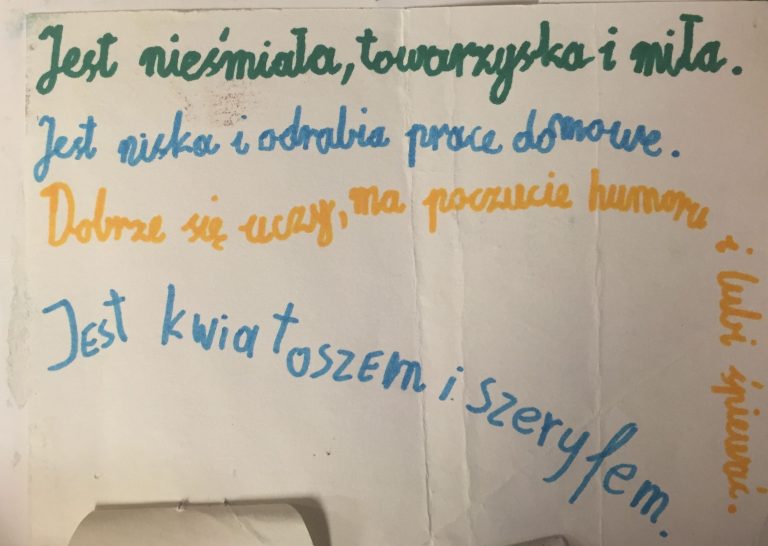 Jest nieśmiała, towarzyska i miła.
Jest niska i odrabia prace domowe.
Dobrze się uczy, ma poczucie humoru i lubi śpiewać.
Jest kwiatoszem i szeryfem.